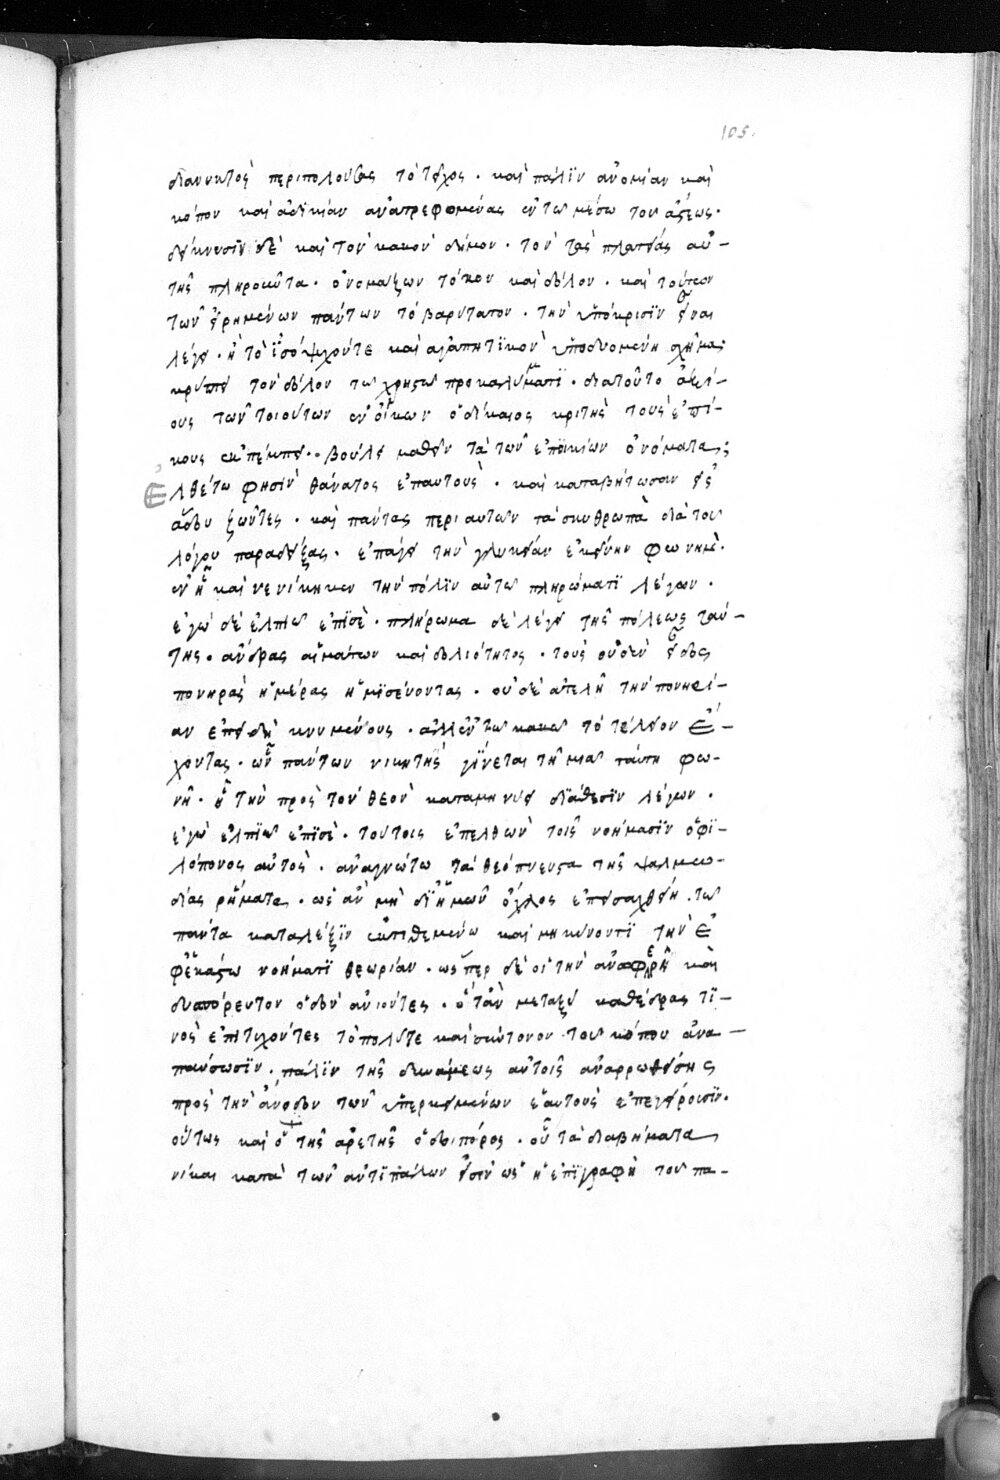 105.
διαννκτὸς περιπολούσας τὸ τεῖχος · καὶ πάλϊν ἀνομίαν καὶ
κόπον καὶ ἀδικίαν ἀναστρεφομένας ἐν τῶ μέσω τοῦ ἄστεως ·
δείκνυσϊν δὲ καὶ τὸν κακὸν δῆμον · τὸν τὰς πλατείας αὐ-
τῆς πληροῦντα · ὀνομάζων τόκον καὶ δόλον · καὶ τούτων
τῶν εἰρημένων πάντων τὸ βαρύτατον · τὴν ὑπόκρισϊν εἶναι
λέγει · ἡ τὸ ἰσόψυχόν τε καὶ ἀγαπητϊκὸν ὑποδυομένη σχῆμα ·
κρύπτει τὸν δόλον τῶ χρηστῶ προκαλύμματϊ · διατοῦτο ἀξί-
ους τῶν τοιούτων ἐνοίκων ὁ δίκαιος κριτὴς τοὺς ἐποί-
κους ἐκπέμπει · βούλει μαθεῖν τὰ τῶν ἐποίκων ὀνόματα ;
Ἐλθέτω φησὶν θάνατος ἐπαυτοὺς · καὶ καταβήτωσαν εἰς
ἅδου ζῶντες · καὶ πάντα περι αυτῶν τὰ σκυθρωπὰ διὰ τοῦ
λόγου παραδείξας · ἐπάγει τὴν γλυκεῖαν ἐκείνην φωνὴν ·
ἐν ᾗ καὶ νενίκηκεν τὴν πόλϊν αὐτῶ πληρώματϊ λέγων ·
ἐγὼ δὲ ἐλπιῶ ἐπϊσὲ · πλήρωμα δὲ λέγει τῆς πόλεως ταύ-
της · ἄνδρας αἱμάτων καὶ δολιότητος · τοὺς οὐδὲν εἶδος
πονηρᾶς ἡμέρας ἡμϊσεύοντας · οὐδὲ ἀτελῆ τὴν πονηρί-
αν ἐπιδεικνυμένους · ἀλλ' ἐν τῶ κακῶ τὸ τέλειον ἔ-
χοντας · ὧν πάντων νικητὴς γΐνεται τῆ μιᾶ ταύτη φω-
νῆ · ᾗ τὴν πρὸς τὸν θεὸν καταμηνύει διάθεσϊν λέγων ·
ἐγὼ ἐλπϊῶ ἐπϊσὲ · τούτοις ἐπελθὼν τοῖς νοήμασϊν ὁ φϊ-
λόπονος αὐτὸς · ἀναγνώτω τὰ θεόπνευστα τῆς ψαλμω-
δίας ῥήματα · ὡς ἂν μὴ δϊ' ἡμῶν ὄχλος ἐπεισαχθείη · τῶ
πάντα κατὰ λέξϊν ἐκτιθεμένω καὶ μηκύνοντϊ τὴν ἐ
φ' ἑκάστω νοήματϊ θεωρίαν · ὥσπερ δὲ οἱ τὴν ἀναφερῆ καὶ
δυσπόρευτον ὁδὸν ἀνιόντες · ὅταν μεταξὺ καθέδρας τϊ-
νὸς ἐπιτυχόντες τὸ πολύ τε καὶ σύντονον τοῦ κόπου ἀνα-
παύσωσϊν · πάλϊν τῆς δυνάμεως αὐτοῖς ἀναρρωθείσης
πρὸς τὴν ἄνοδον τῶν ὑπερκειμένων ἑαυτοὺς ἐπεγείροισϊν ·
οὕτως καὶ ὁ τῆς ἀρετῆς ὁδοιπόρος · οὗ τὰ διαβήματα
νίκαι κατὰ τῶν ἀντϊπάλων εἰσὶν ὡς ἡ ἐπϊγραφὴ τοῦ πα-